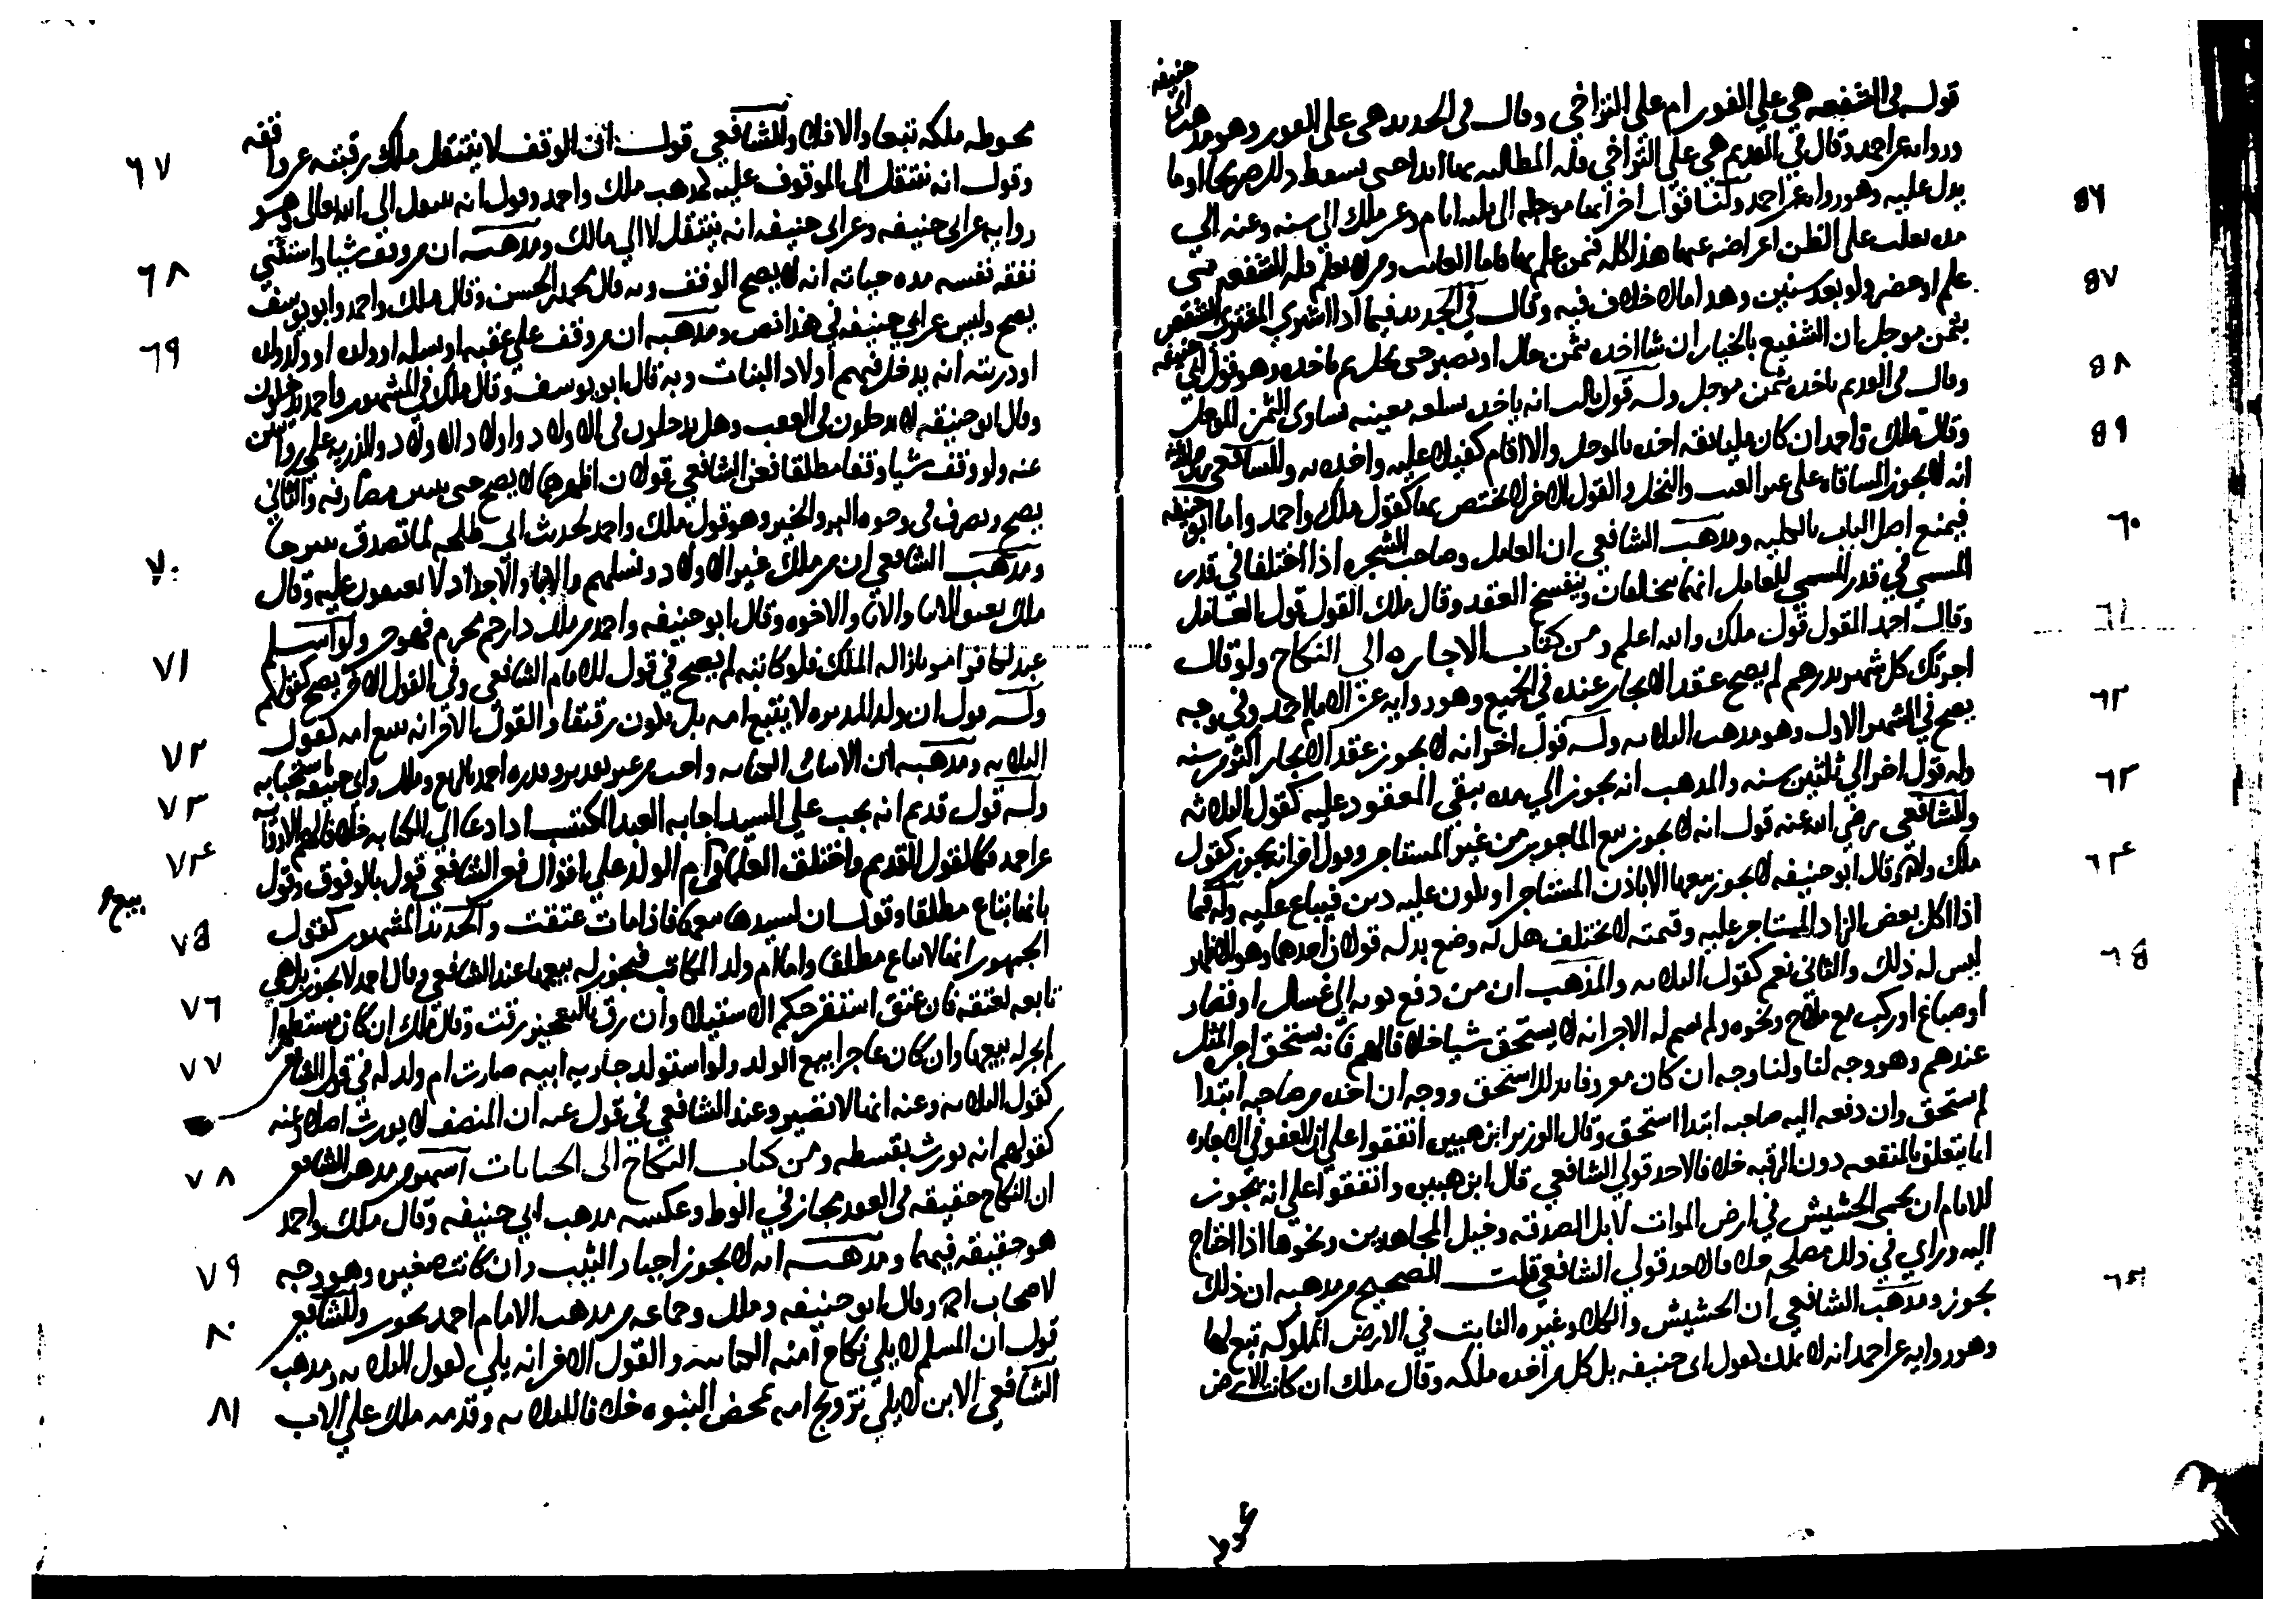 قول في الشفعه هي علي الفور ام علي التراخي وقال في الجديد هي علي الفور وهو مذهب ابي حنيفه
ورواية عن احمد وقال في القديم هي علي التراخي فله المطالبه بها ابدا حتى يسقط ذلك صريحا او ما
يدل عليه وهو رواية عن احمد وله قول اخر انها موجله الى ثلاثة ايام وعن ملك الى سنه وعنه الي
مده يغلب على الظن اعراضه عنها هذا كله فيمن علم بها فاما الغائب ومن لم يعلم فله الشفعه متى
علم او حضر ولو بعد سنين وهذا مما لا خلاف فيه وقال في الجديد فيما اذا اشترى المشتري الشقص
بثمن موجل ان الشفيع بالخيار ان شا اخذه بثمن حال او يصبر حتى يحل ثم ياخذه وهو قول ابي حنيفه
وقال في القديم ياخذه بثمن موجل وله قول ثالث انه ياخذه بسلعه معينه تساوى الثمن الموجل
وقال ملك واحمد ان كان مليا ثقه اخذه بالموجل والا اقام كفيلا عليه واخذه به وللشافعي
انه لا يجوز المساقاه على غير العنب والنخل والقول الاخر لا يختص بهما كقول ملك واحمد واما ابو حنيفه
فيمنع اصل الباب بالكليه ومذهب الشافعي ان العامل وصاحب الشجره اذا اختلفا في قدر
المسمى في قدر المسمى للعامل انهما يتحالفان وينفسخ العقد وقال ملك القول قول العامل
وقال احمد القول قول ملك والله اعلم ومن كتاب الاجاره الى النكاح ولو قال
اجرتك كل شهر بدرهم لم يصح عقد الايجار عنده في الجميع وهو رواية عن الامام احمد وفي وجه
يصح في الشهر الاول وهو مذهب الثلاثه وله قول اخر انه لا يجوز عقد الايجار اكثر من سنه
وله قول اخر الي ثلثين سنه والمذهب انه يجوز الي مده يبقى المعقود عليه كقول الثلاثه
وللشافعي رضي الله عنه قول انه لا يجوز بيع الماجور من غير المستاجر وقول اخر انه يجوز كقول
ملك وله وقال ابو حنيفه لا يجوز بيعها الا باذن المستاجر او يكون عليه دين فيباع عليه وله فيما
اذا اكل بعض الزاد المستاجر عليه وقيمته لا تختلف هل له وضع بدله قولان احدهما وهو الاظهر
ليس له ذلك والثانى نعم كقول الثلاثه والمذهب ان من دفع ثوبه الى غسال او قصار
او صباغ او ركب مع ملاح ونحوه ولم يسم له الاجر انه لا يستحق شيا خلافا لهم فانه يستحق اجره المثل
عندهم وهو وجه لنا ولنا وجه ان كان معروفا بذلك استحق ووجه ان اخذه من صاحبه ابتدا
لم يستحق وان دفعه اليه صاحبه ابتدا استحق وقال الوزير ابن هبيره اتفقوا على ان العقود في الاجاره
انما يتعلق بالمنفعه دون الرقبه خلافا لاحد قولي الشافعي قال ابن هبيره واتفقوا على انه يجوز
للامام ان يحمى الحشيش في ارض الموات لابل الصدقه وخيل المجاهدين ونحوها اذا احتاج
اليه وراي في ذلك مصلحه خلافا لاحد قولي الشافعي قلت الصحيح من مذهبه ان ذلك
يجوز ومذهب الشافعي ان الحشيش والكلا وغيره النابت في الارض المملوكه تبع لها
وهو روايه عن احمد انه لا يملك كقول ابى حنيفه بل كل من اخذه ملكه وقال ملك ان كانت الارض
٥٦
٥٧
٥٨
٥٩
٦٠
٦١
٦٢
٦٣
٦٤
٦٥
٦٦
محوطه ملكه تبعا والا فلا وللشافعي قول ان الوقف لا ينتقل ملك رقبته عن واقفه
وقول انه ينتقل الى الموقوف عليه كمذهب ملك واحمد وقول انه ينتقل الي الله تعالى وهو
رواية عن ابي حنيفه وعن ابى حنيفه انه ينتقل لا الي مالك ومذهبه ان من وقف شيا واستثني
نفقه نفسه مده حياته انه لا يصح الوقف وبه قال محمد بن الحسن وقال ملك واحمد وابو يوسف
يصح وليس عن ابي حنيفه في هذا نص ومذهبه ان من وقف على عقبه او نسله او ولده او ولد ولده
او ذريته انه يدخل فيهم اولاد البنات وبه قال ابو يوسف وقال ملك في المشهور واحمد لا يدخلون
وقال ابو حنيفه لا يدخلون في العقب وهل يدخلون في الاولاد واولاد الاولاد والذريه علي روايتين
عنه ولو وقف شيا وقفا مطلقا فعن الشافعي قولان اظهرهما لا يصح حتى يبين مصارفه والثاني
يصح ويصرف في وجوه البر والخير وهو قول ملك واحمد لحديث ابى طلحه لما تصدق ببيرحا
ومذهب الشافعي ان من ملك غير الاولاد ونسلهم والابا والاجداد لا يعتقون عليه وقال
ملك يعتق الابنا والابا والاخوه وقال ابو حنيفه واحمد من ملك ذا رحم محرم فهو حر ولو اسلم
عبد لكافر امر بازاله الملك فلو كاتبه لم يصح في قول للامام الشافعي وفي القول الاخر يصح كقولهم
وله قول ان ولد المدبره لا يتبع امه بل يكون رقيقا والقول الاخر انه يتبع امه كقول
الثلاثه ومذهبه ان الايتا في الكتابه واجب من غير تقدير وقدره احمد بالربع وملك وابي حنيفه باستحبابه
وله قول قديم انه يجب علي السيد اجابه العبد المكتسب اذا دعا الي الكتابه خلافا لهم الا روايه
عن احمد فكالقول القديم واختلف العلما في ام الولد علي اقوال فعن الشافعي قول بالوقوف وقول
بانها تباع مطلقا وقول ان لسيدها بيعها فاذا مات عتقت والجديد المشهور كقول
الجمهور انها لا تباع مطلقا واما ام ولد المكاتب فيجوز له بيعها عند الشافعي وقال احمد لا يجوز بل هي
تابعه لعتقه فان عتق استقر حكم الاستيلاد وان رق بالتعجيز رقت وقال ملك ان كان مستظهرا
لم يجز له بيعها وان كان عاجزا بيع الولد ولو استولد جاريه ابيه صارت ام ولد له في قول الشافعي
كقول الثلاثه وعنه انها لا تصير وعند الشافعي في قول عنه ان المنصف لا يورث اصلا وعنه
كقولهم انه يورث بقسطه ومن كتاب النكاح الى الجنايات اشهر مذهب الشافعي
ان النكاح حقيقه في العقد مجاز في الوط وعكسه مذهب ابي حنيفه وقال ملك واحمد
هو حقيقه فيهما ومذهبه انه لا يجوز اجبار الثيب وان كانت صغيره وهو وجه
لاصحاب احمد وقال ابو حنيفه وملك وجماعه من مذهب الامام احمد يجوز وللشافعي
قول ان المسلم لا يلي نكاح امته الكتابيه والقول الاخر انه يلي كقول الثلاثه ومذهب
الشافعي الابن لا يلي تزويج امه بمحض البنوه خلافا للثلاثه وقدمه ملك علي الاب
٦٧
٦٨
٦٩
٧٠
٧١
٧٢
٧٣
٧٤
بيع
٧٥
٧٦
٧٧
٧٨
٧٩
٨٠
٨١